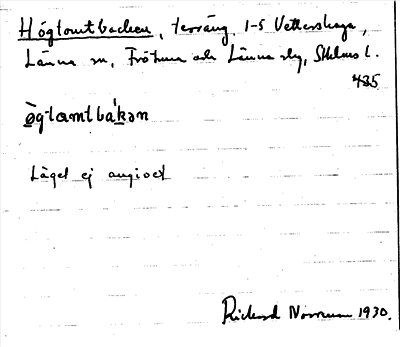 Högtomtbacken, terräng, 1-5 Vettershaga,
Länna sn, Frötuna och Länna slg, Sthlms l.
485
Läget ej angivet
Rickard Norrman 1930.